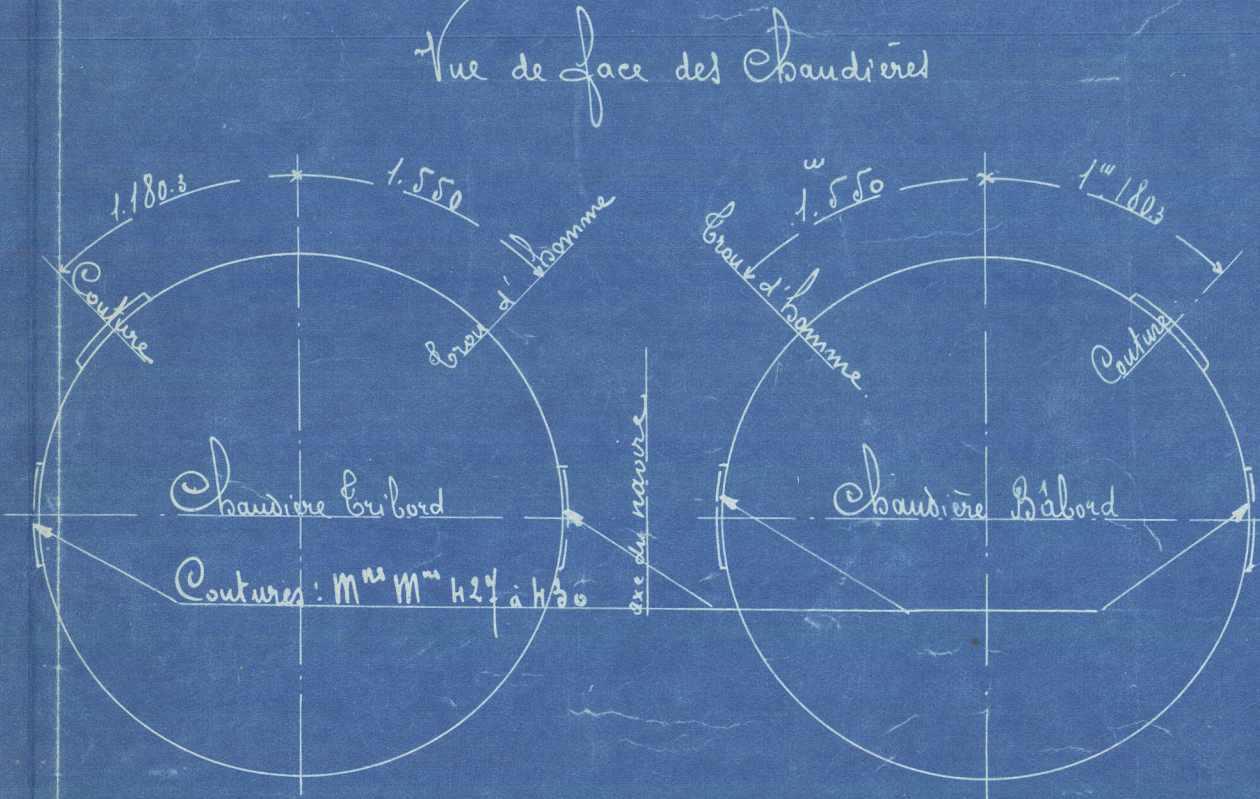 Vue de face des Chaudières
1.180.3
1.550
1.550 m
1m180.3
Couture
Trou d'homme
Trou d'homme
Couture
Chaudière Tribord
axe du navire
Chaudière Bâbord
Coutures: Mnes Mm 427 à 430